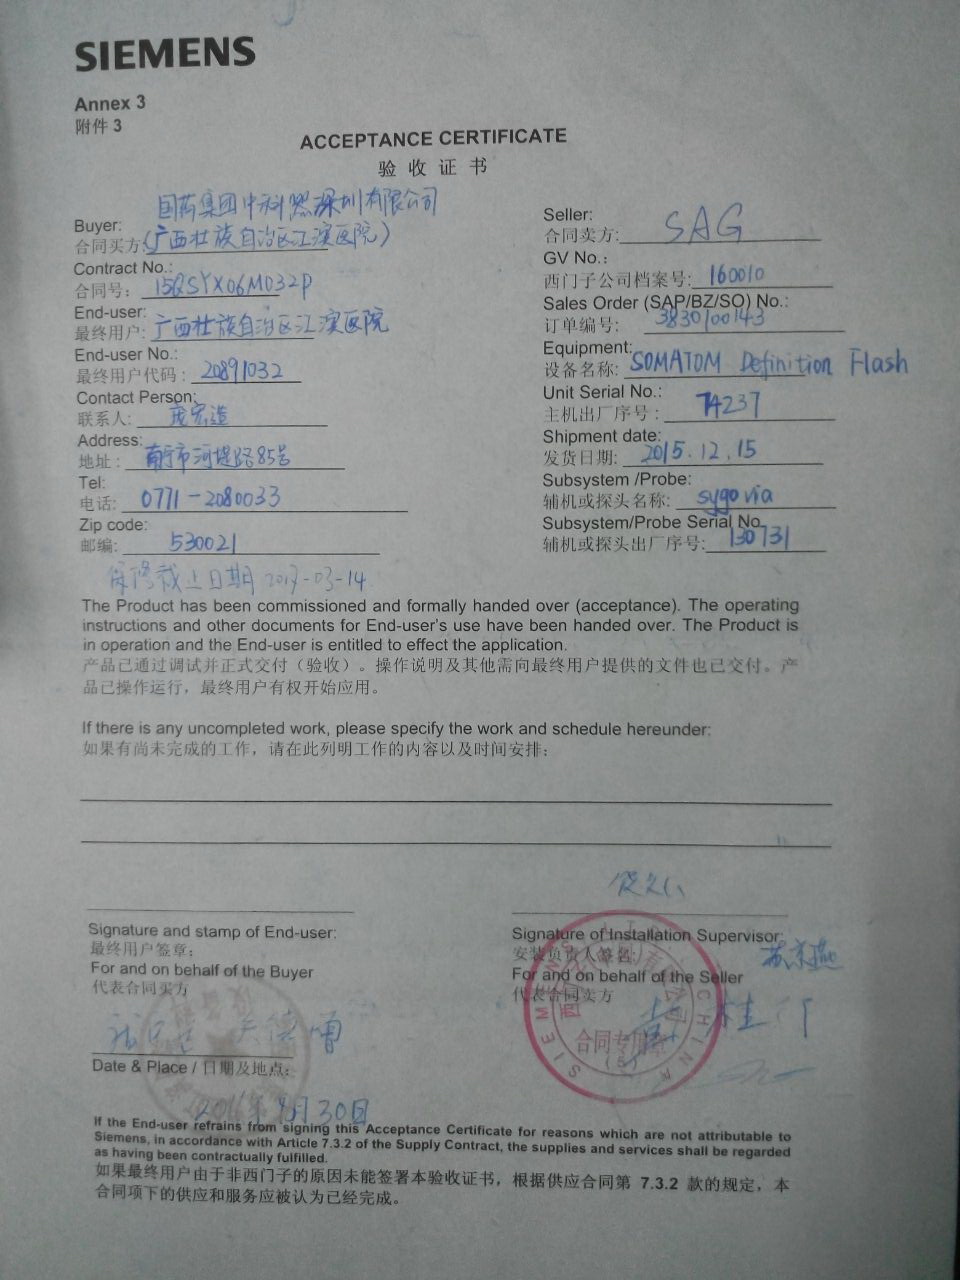 SIEMENS
Annex 3
附件 3
ACCEPTANCE CERTIFICATE
验 收 证 书
国药集团中科器深圳有限公司
Buyer:
合同买方:(广西壮族自治区江滨医院)
Contract No.:
合同号: 15QSYX06M032P
End-user:
最终用户: 广西壮族自治区江滨医院
End-user No.:
最终用户代码: 20891032
Contact Person:
联系人: 庞宏造
Address:
地址: 南宁市河堤路85号
Tel:
电话: 0771-2080033
Zip code:
邮编: 530021
保修截止日期 2017-03-14
Seller:
合同卖方: SAG
GV No.:
西门子公司档案号: 160010
Sales Order (SAP/BZ/SO) No.:
订单编号: 3830100143
Equipment:
设备名称: SOMATOM Definition Flash
Unit Serial No.:
主机出厂序号: 74237
Shipment date:
发货日期: 2015.12.15
Subsystem /Probe:
辅机或探头名称: sygovia
Subsystem/Probe Serial No.
辅机或探头出厂序号: 130731
The Product has been commissioned and formally handed over (acceptance). The operating
instructions and other documents for End-user's use have been handed over. The Product is
in operation and the End-user is entitled to effect the application.
产品已通过调试并正式交付（验收）。操作说明及其他需向最终用户提供的文件也已交付。产
品已操作运行，最终用户有权开始应用。
If there is any uncompleted work, please specify the work and schedule hereunder:
如果有尚未完成的工作，请在此列明工作的内容以及时间安排:
Signature and stamp of End-user:
最终用户签章:
For and on behalf of the Buyer
代表合同买方
Date & Place / 日期及地点:
2016年9月30日
Signature of Installation Supervisor:
安装负责人签名:
For and on behalf of the Seller
代表合同卖方
合同专用章
(5)
If the End-user refrains from signing this Acceptance Certificate for reasons which are not attributable to
Siemens, in accordance with Article 7.3.2 of the Supply Contract, the supplies and services shall be regarded
as having been contractually fulfilled.
如果最终用户由于非西门子的原因未能签署本验收证书，根据供应合同第 7.3.2 款的规定，本
合同项下的供应和服务应被认为已经完成。